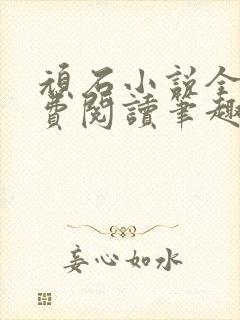 頑石小說全
費閱讀筆趣
妄心如水